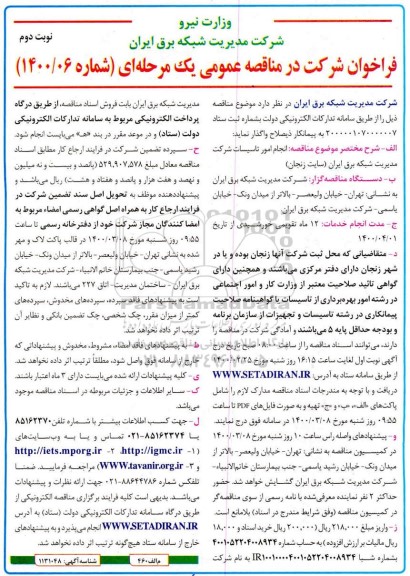 وزارت نیرو
شرکت مدیریت شبکه برق ایران
نوبت دوم
فراخوان شرکت در مناقصه عمومی یک مرحله‌ای (شماره ۱۴۰۰/۰۶)
شرکت مدیریت شبکه برق ایران در نظر دارد موضوع مناقصه
ذیل را از طریق سامانه تدارکات الکترونیکی دولت بشماره ثبت ستاد
۲۰۰۰۰۰۱۰۷۰۰۰۰۰۰۷ به پیمانکار ذیصلاح واگذار نماید:
الف- شرح مختصر موضوع مناقصه: انجام امور تاسیسات شرکت
مدیریت شبکه برق ایران (سایت زنجان)
ب- دستگاه مناقصه‌گزار: شرکت مدیریت شبکه برق ایران
به نشانی: تهران- خیابان ولیعصر- بالاتر از میدان ونک- خیابان
یاسمی- شرکت مدیریت شبکه برق ایران
ج- مدت انجام خدمات: ۱۲ ماه تقویمی خورشیدی از تاریخ
۱۴۰۰/۰۴/۰۱
د- متقاضیانی که محل ثبت شرکت آنها زنجان بوده و یا در
شهر زنجان دارای دفتر مرکزی می‌باشند و همچنین دارای
گواهی تائید صلاحیت معتبر از وزارت کار و امور اجتماعی
در رشته امور بهره‌برداری از تاسیسات یا گواهینامه صلاحیت
پیمانکاری در رشته تاسیسات و تجهیزات از سازمان برنامه
و بودجه حداقل پایه ۵ می‌باشند و آمادگی شرکت در مناقصه را
دارند، می‌توانند اسناد مناقصه را از ساعت ۰۸:۰۰ صبح تاریخ درج
آگهی نوبت اول لغایت ساعت ۱۶:۱۵ روز شنبه مورخ
از طریق سامانه ستاد به آدرس: WWW.SETADIRAN.IR
دریافت و با توجه به مندرجات اسناد مناقصه مدارک لازم را شامل
پاکت‌های «الف»، «ب» و «ج» تهیه و به صورت فایل‌های PDF تا ساعت
۰۹:۵۵ روز شنبه مورخ ۱۴۰۰/۰۳/۰۸ در سامانه فوق درج نمایند.
و- پیشنهادهای واصله راس ساعت ۱۰ روز شنبه مورخ ۱۴۰۰/۰۳/۰۸
در کمیسیون مناقصه به نشانی: تهران- خیابان ولیعصر- بالاتر از
میدان ونک- خیابان رشید یاسمی- جنب بیمارستان خاتم‌الانبیاء-
شرکت مدیریت شبکه برق ایران گشایش خواهد شد. حضور
حداکثر ۲ نفر نماینده معرفی‌شده با نامه رسمی از سوی مناقصه‌گر
در کمیسیون مناقصه (وفق شرایط مندرج در اسناد) بلامانع است.
ز- واریز مبلغ ۲۱۸,۰۰۰ ریال (۲۰۰,۰۰۰ ریال خرید اسناد و ۱۸,۰۰۰
ریال مالیات بر ارزش افزوده) به حساب شماره
بشماره شبا به نام شرکت
مدیریت شبکه برق ایران بابت فروش اسناد مناقصه، از طریق درگاه
پرداخت الکترونیکی مربوط به سامانه تدارکات الکترونیکی
دولت (ستاد) و در موعد مقرر در بند «هـ» می‌بایست انجام شود.
ح- سپرده تضمین شرکت در فرایند ارجاع کار مطابق اسناد
مناقصه معادل مبلغ ۵۲۹,۹۰۷,۵۷۸ (پانصد و بیست و نه میلیون
و نهصد و هفت هزار و پانصد و هفتاد و هشت) ریال می‌باشد و
پیشنهاددهنده موظف به تحویل اصل سند تضمین شرکت در
فرایند ارجاع کار به همراه اصل گواهی رسمی امضاء مربوط به
امضا کنندگان مجاز شرکت خود از دفترخانه رسمی تا ساعت
۰۹:۵۵ روز شنبه مورخ ۱۴۰۰/۰۳/۰۸ در قالب پاکت لاک و مهر
شده به نشانی تهران- خیابان ولیعصر- بالاتر از میدان ونک- خیابان
رشید یاسمی- جنب بیمارستان خاتم الانبیاء- شرکت مدیریت شبکه
برق ایران- ساختمان مدیریت- اتاق ۲۲۷ می‌باشند. لازم به تاکید
است به پیشنهادهای فاقد سپرده، سپرده‌های مخدوش، سپرده‌های
کمتر از میزان مقرر، چک شخصی، چک تضمین بانکی و نظایر آن
ترتیب اثر داده نخواهد شد.
ط- به پیشنهادهای فاقد امضاء، مشروط، مخدوش و پیشنهاداتی که
خارج از سامانه فوق واصل شود، مطلقاً ترتیب اثر داده نخواهد شد.
ی- کلیه پیشنهادات ارائه شده می‌بایست دارای ۳ ماه اعتبار باشند.
ک- سایر اطلاعات و جزئیات مربوطه در اسناد مناقصه موجود
می‌باشد.
ل- جهت کسب اطلاعات بیشتر با شماره تلفن ۸۵۱۶۲۳۷۰
یا ۸۵۱۶۲۳۷۴-۰۲۱ تماس و یا به وب‌سایت‌های
(۱- http://igmc.ir، ۲- http://iets.mporg.ir
و ۳- WWW.tavanir.org.ir) مراجعه فرمایید. ضمنا
شماره تلفکس ۸۸۶۴۴۷۸۶-۰۲۱ جهت ارائه نظرات و پیشنهادات
می‌باشد. بدیهی است کلیه فرایند برگزاری مناقصه الکترونیکی از
طریق درگاه سامانه تدارکات الکترونیکی دولت (ستاد) به آدرس
WWW.SETADIRAN.IR انجام می‌پذیرد و به پیشنهادهای
خارج از سامانه ستاد هیچ‌گونه ترتیب اثر داده نخواهد شد.
م‌الف ۴۶۰
شناسه آگهی: ۱۱۳۱۰۴۸